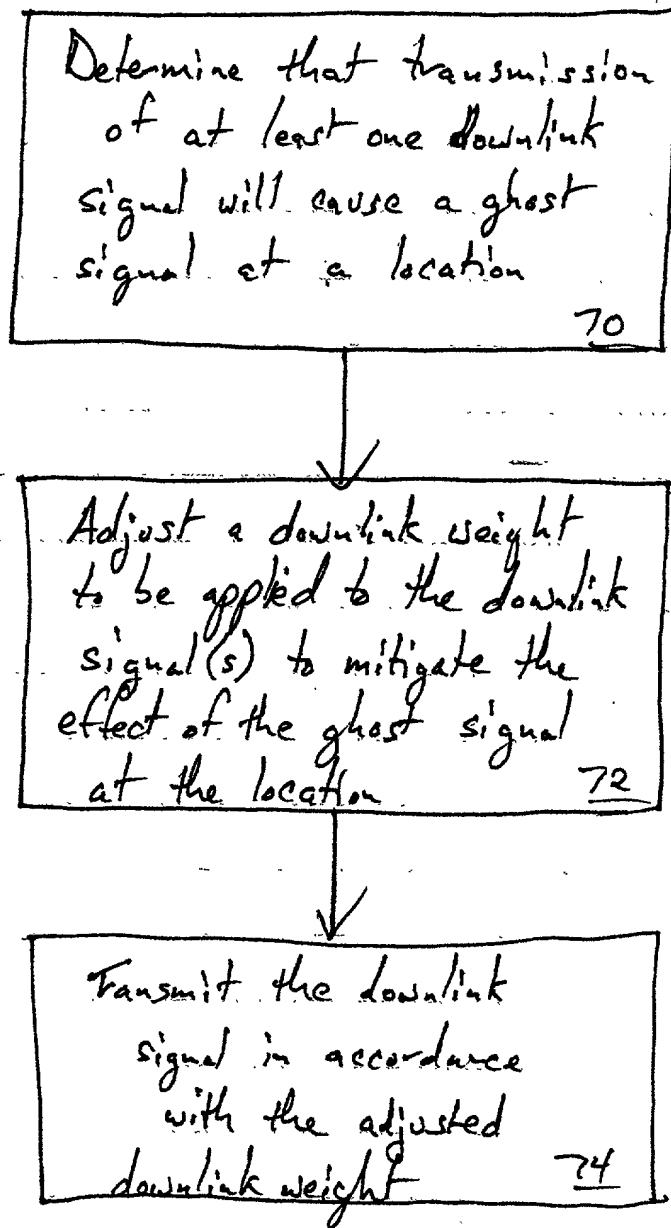 Determine that transmission
of at least one downlink
signal will cause a ghost
signal at a location
70
Adjust a downlink weight
to be applied to the downlink
signal(s) to mitigate the
effect of the ghost signal
at the location 72
Transmit the downlink
signal in accordance
with the adjusted
downlink weight 74